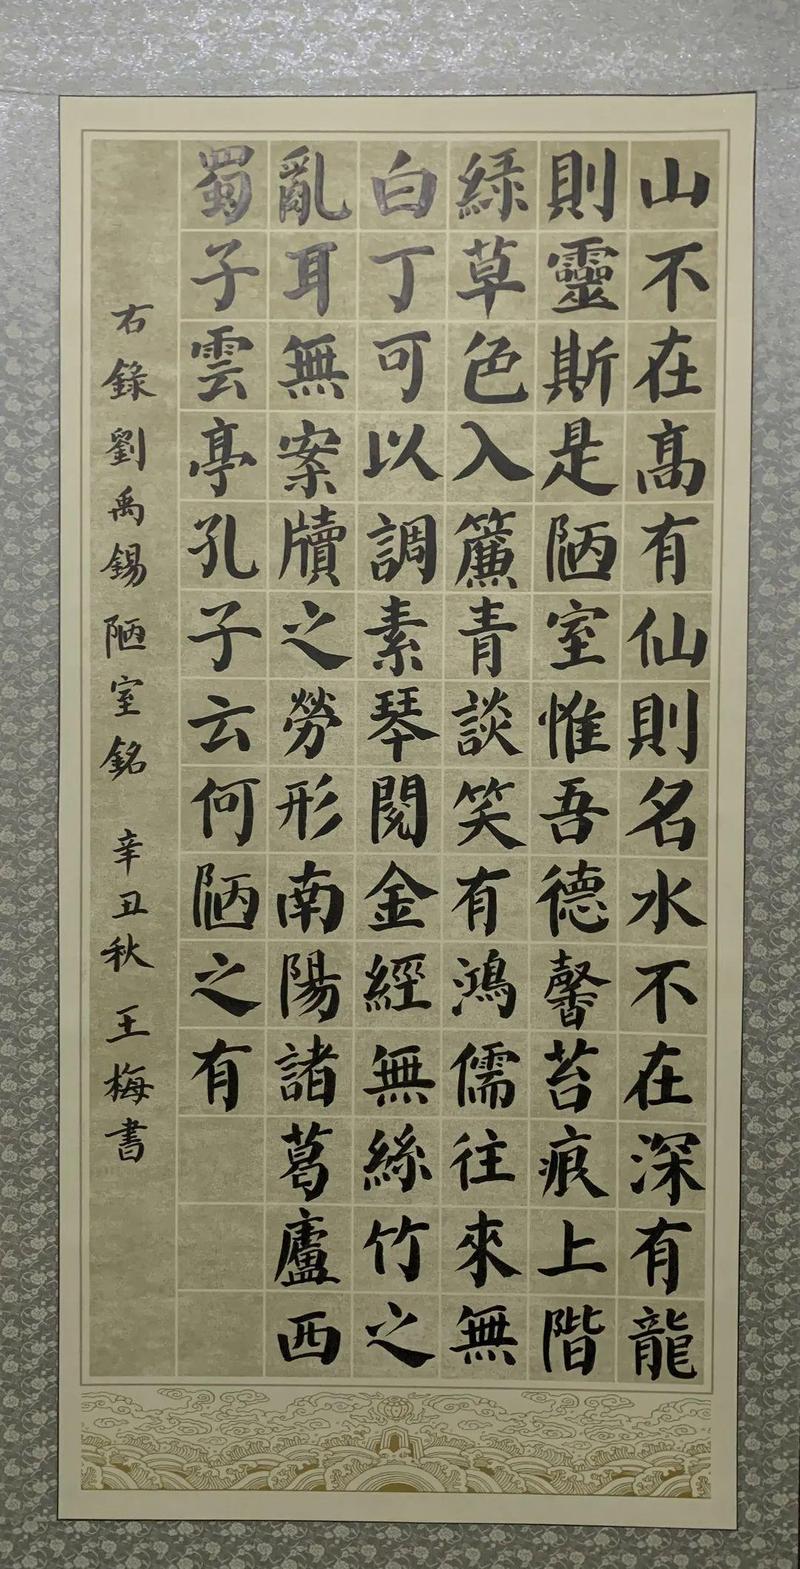 山不在高有仙則名水不在深有龍
則靈斯是陋室惟吾德馨苔痕上階
綠草色入簾青談笑有鴻儒往來無
白丁可以調素琴閱金經無絲竹之
亂耳無案牘之勞形南陽諸葛廬西
蜀子雲亭孔子云何陋之有
右錄劉禹錫陋室銘 辛丑秋 王梅書